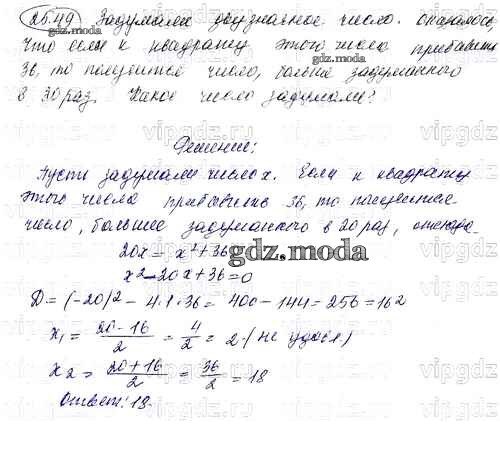 25.49 Задумали двузначное число. Оказалось,
что если к квадрату этого числа прибавить
36, то получится число, больше задуманного
в 30 раз. Какое число задумали?
gdz.moda
Решение:
Пусть задумали число x. Если к квадрату
этого числа прибавить 36, то получится
число, большее задуманного в 20 раз, отсюда
20x = x² + 36
gdz.moda
x² - 20x + 36 = 0
D = (-20)² - 4·1·36 = 400 - 144 = 256 = 16²
x₁ = (20-16)/2 = 4/2 = 2 (не удовл)
x₂ = (20+16)/2 = 36/2 = 18
gdz.moda
Ответ: 18.